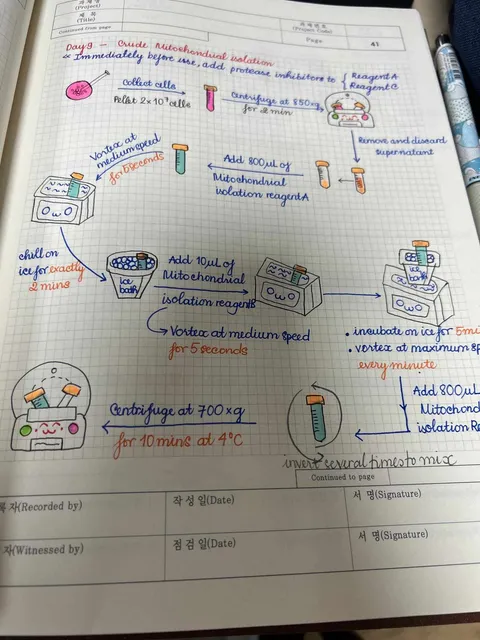 (Project)
제 목
(Title)
Continued from page
(Project Code)
Page
41
Day 9 - Crude Mitochondrial isolation
* Immediately before use, add protease inhibitors to { Reagent A
Reagent C
Collect cells
Pellet 2x10⁷ cells
Centrifuge at 850xg
for 2 min
Remove and discard
supernatant
Add 800 µL of
Mitochondrial
isolation reagent A
Vortex at
medium speed
for 5 seconds
OwO
chill on
ice for exactly
2 mins
ice
bath
Add 10 µL of
Mitochondrial
isolation reagent B
→ Vortex at medium speed
for 5 seconds
OwO
ice
bath
OwO
• incubate on ice for 5mi
• vortex at maximum sp
every minute
Add 800 µL
Mitochond
isolation Re
invert several times to mix
Centrifuge at 700xg
for 10 mins at 4°C
Continued to page
록 자(Recorded by)
작 성 일(Date)
서 명(Signature)
자(Witnessed by)
점 검 일(Date)
서 명(Signature)